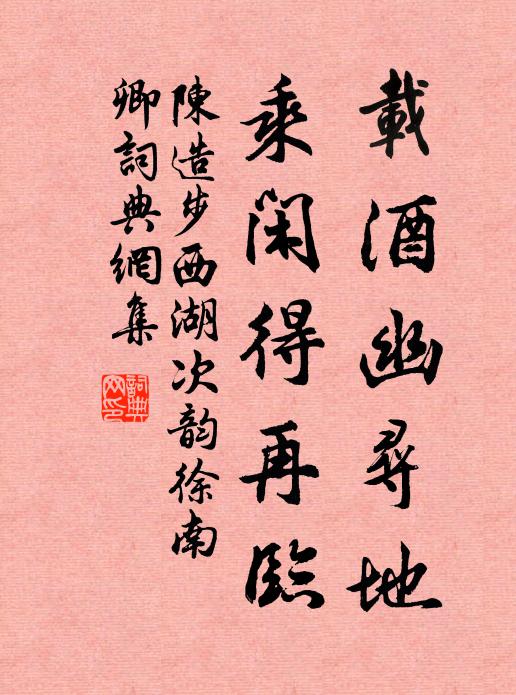 載酒幽尋地
乘閑得再臨
陳造步西湖次韵徐南
卿詞典網集
詞典
网印